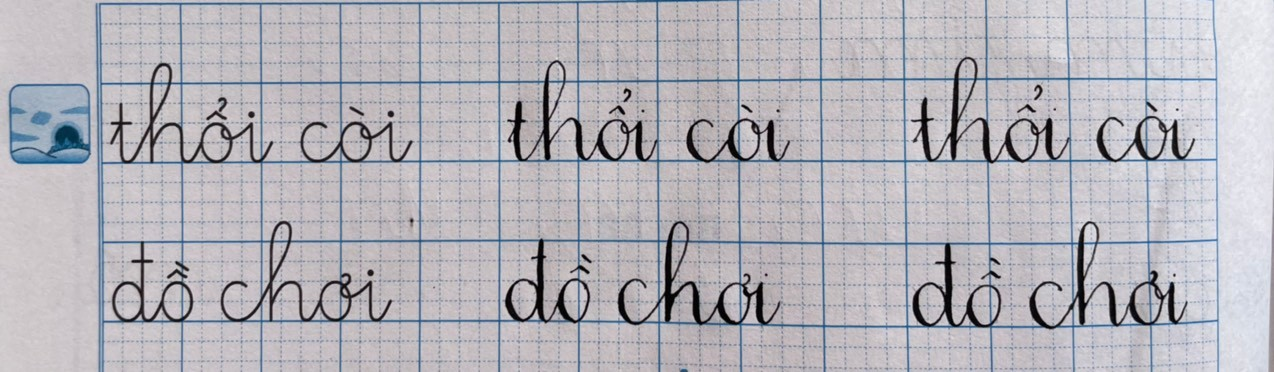 thổi còi thổi còi thổi còi
đồ chơi đồ chơi đồ chơi